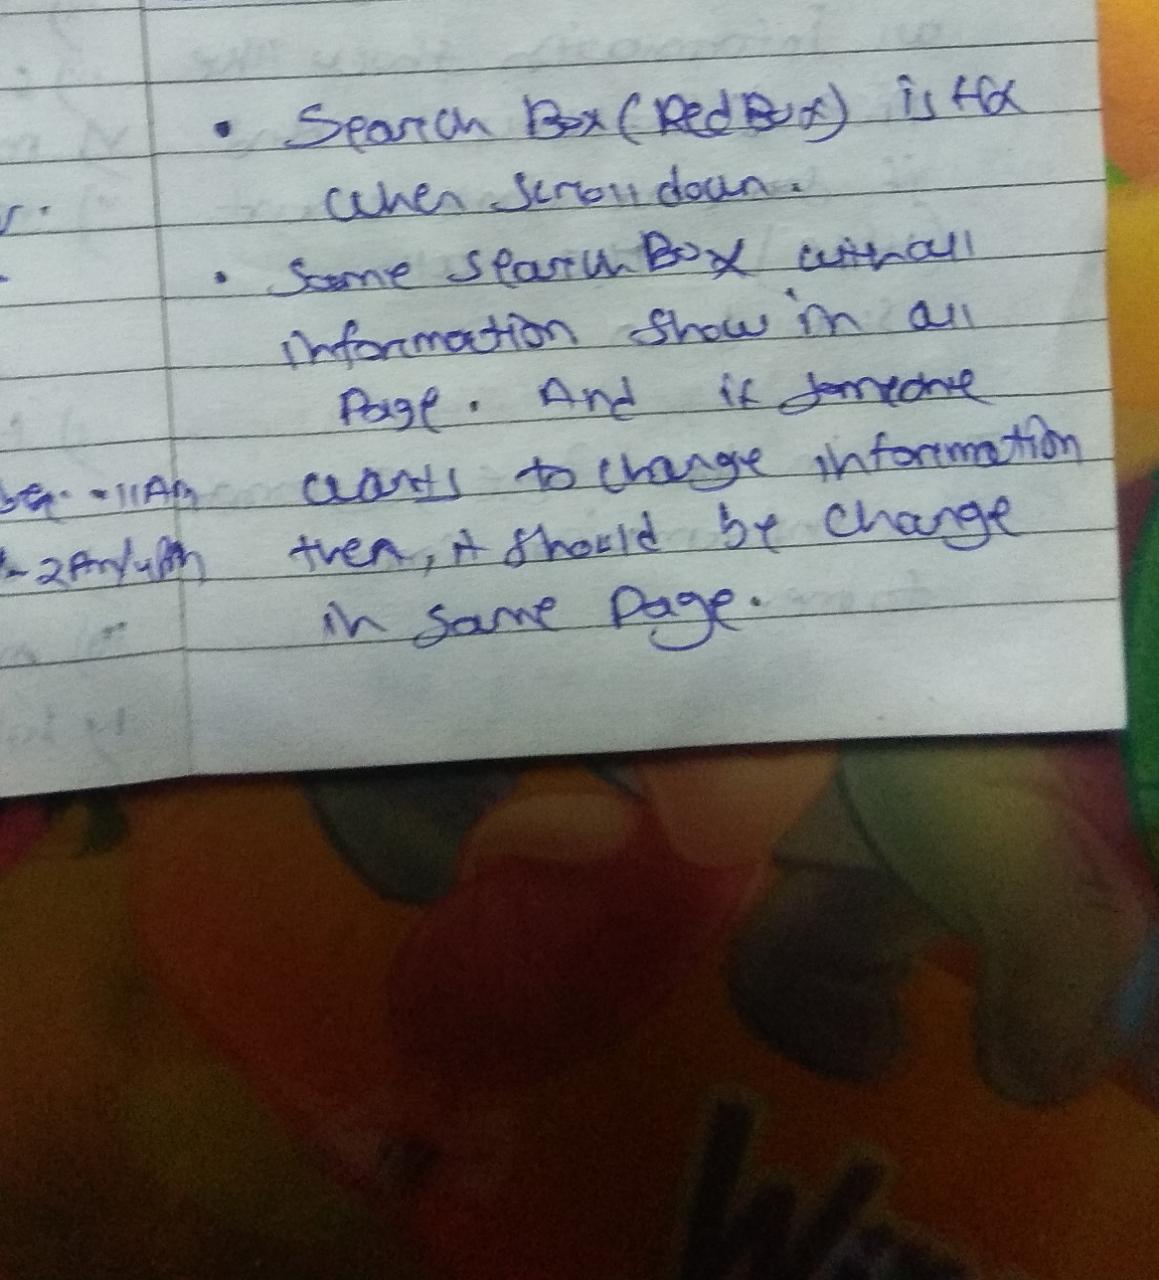 • Search Box (Red Box) is fix
when scroll down.
• Same search Box with all
information show in all
Page. And if someone
-11Am wants to change information
- 2Am/ then, it should be change
in same page.